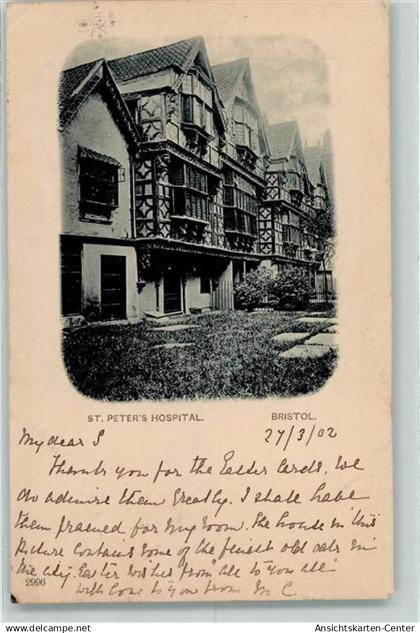 ST. PETER'S HOSPITAL.
BRISTOL.
27/3/02
My dear S
Thanks you for the Easter Cards. We
do admire them greatly. I shall have
them framed for my room. The house in this
Picture contains some of the finest old oak in
the city. Easter wishes from "all to you all"
with love to you from M. C
2996
Ansichtskarten-Center